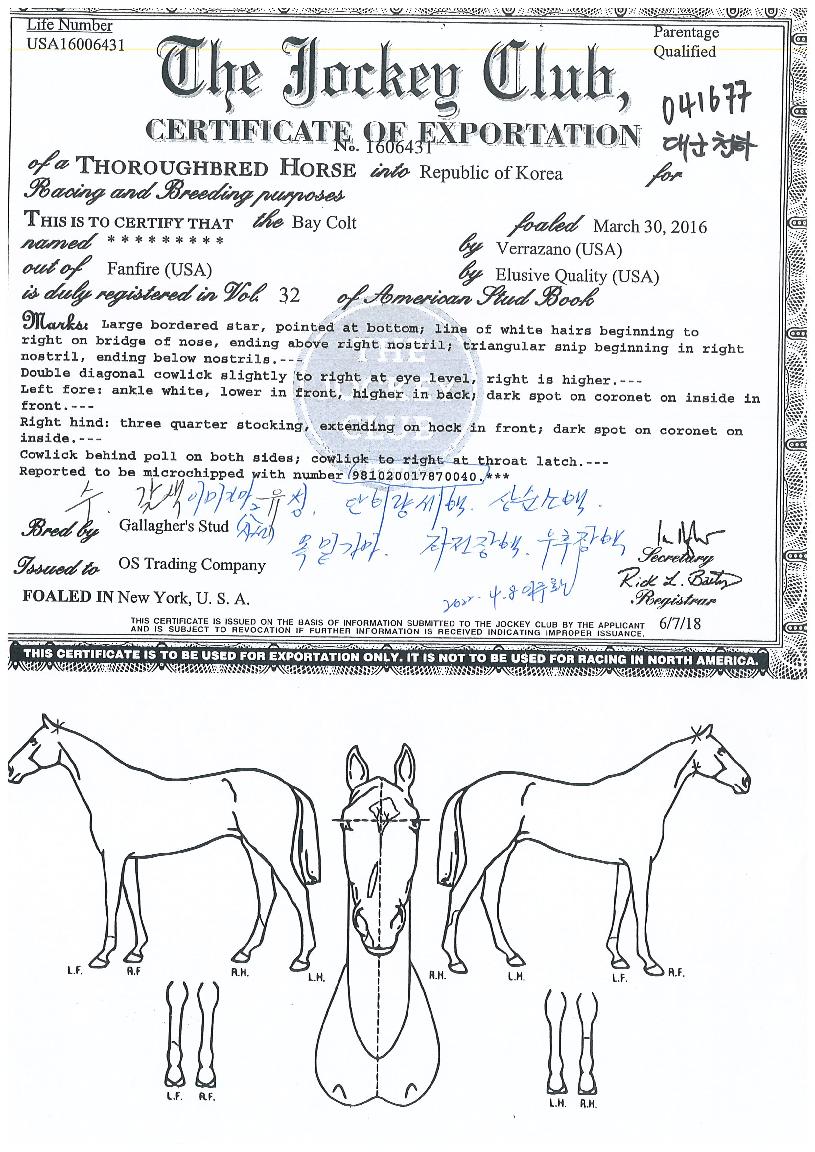 Life Number
USA16006431
Parentage
Qualified
The Jockey Club,
041677
CERTIFICATE OF EXPORTATION
No. 1606431
대군천하
of a THOROUGHBRED HORSE into Republic of Korea for
Racing and Breeding purposes
THIS IS TO CERTIFY THAT the Bay Colt foaled March 30, 2016
named * * * * * * * * * by Verrazano (USA)
out of Fanfire (USA) by Elusive Quality (USA)
is duly registered in Vol. 32 of American Stud Book
THE JOCKEY CLUB
Marks: Large bordered star, pointed at bottom; line of white hairs beginning to
right on bridge of nose, ending above right nostril; triangular snip beginning in right
nostril, ending below nostrils.---
Double diagonal cowlick slightly to right at eye level, right is higher.---
Left fore: ankle white, lower in front, higher in back; dark spot on coronet on inside in
front.---
Right hind: three quarter stocking, extending on hock in front; dark spot on coronet on
inside.---
Cowlick behind poll on both sides; cowlick to right at throat latch.---
Reported to be microchipped with number 981020017870040.***
수. 갈색 유성.
Bred by Gallagher's Stud
Issued to OS Trading Company
Secretary
Rick L. Bailey
Registrar
FOALED IN New York, U. S. A.
THIS CERTIFICATE IS ISSUED ON THE BASIS OF INFORMATION SUBMITTED TO THE JOCKEY CLUB BY THE APPLICANT
AND IS SUBJECT TO REVOCATION IF FURTHER INFORMATION IS RECEIVED INDICATING IMPROPER ISSUANCE.
6/7/18
THIS CERTIFICATE IS TO BE USED FOR EXPORTATION ONLY. IT IS NOT TO BE USED FOR RACING IN NORTH AMERICA.
L.F. R.F R.H. L.H. R.H. L.H. L.F. R.F.
L.F. R.F. L.H. R.H.